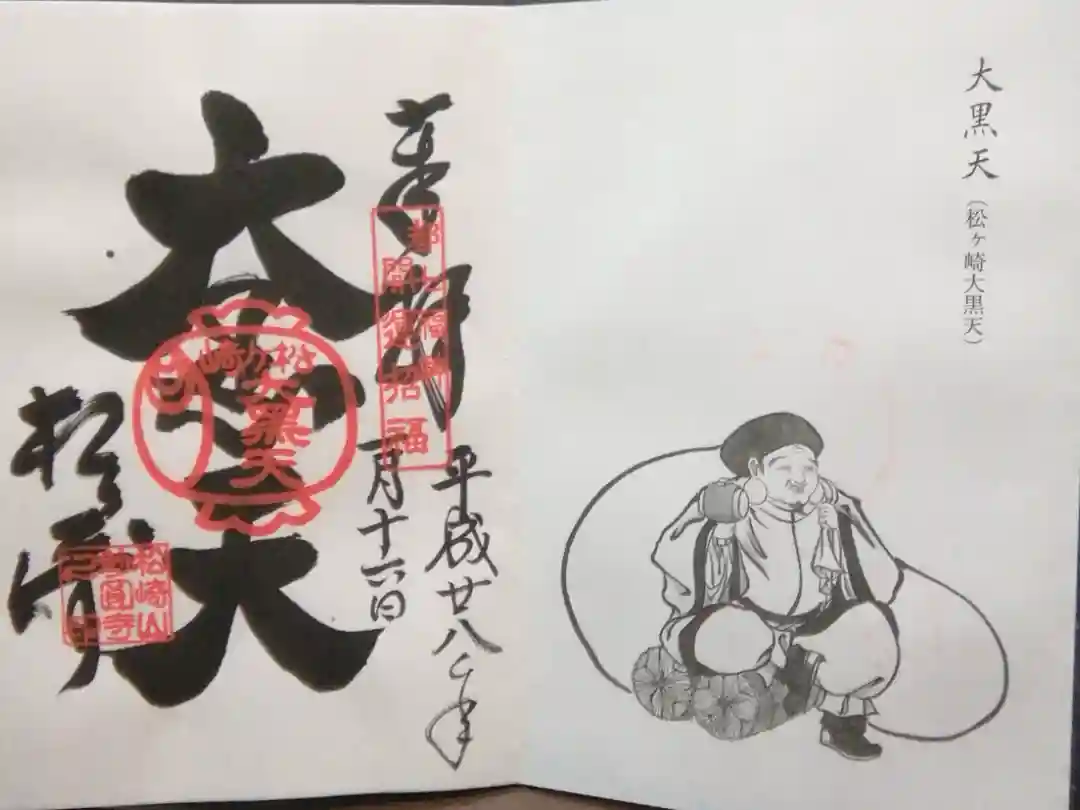 大黒天（松ヶ崎大黒天）
奉拝
都七福神
開運招福
平成廿八年
一月十六日
大黒天
大黒天
松崎山
妙圓寺
之印